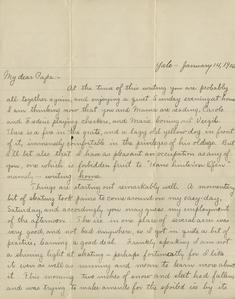 Yale - January 14, 19
My dear Papa:-
At the time of this writing you are probably
all together again, and enjoying a quiet Sunday evening at home.
I am thinking now that you and Mama are reading, Carols
and Frederic playing checkers, and Marie
There is a fire in the grate, and a lazy old yellow dog in front
of it, immensely comfortable in the privileges of his old age. But
I'll bet also that I have as pleasant an occupation as any of
you, one which is forbidden fruit to
namely - writing home.
Things are starting out remarkably well. A momentary
bit of skating took pains to come around on my easy day,
Saturday, and accordingly you may guess my employment
of the afternoon. The ice in one place of several acres was
very good, and not bad anywhere, so I got in quite a bit of
practice, learning a good deal. Frankly speaking I am not
a shining light at skating - perhaps fortunately, for I like
it even as well as running and want to learn more about
it. This morning two inches of snow and sleet had fallen
and was trying to make amends for the spoiled ice by its